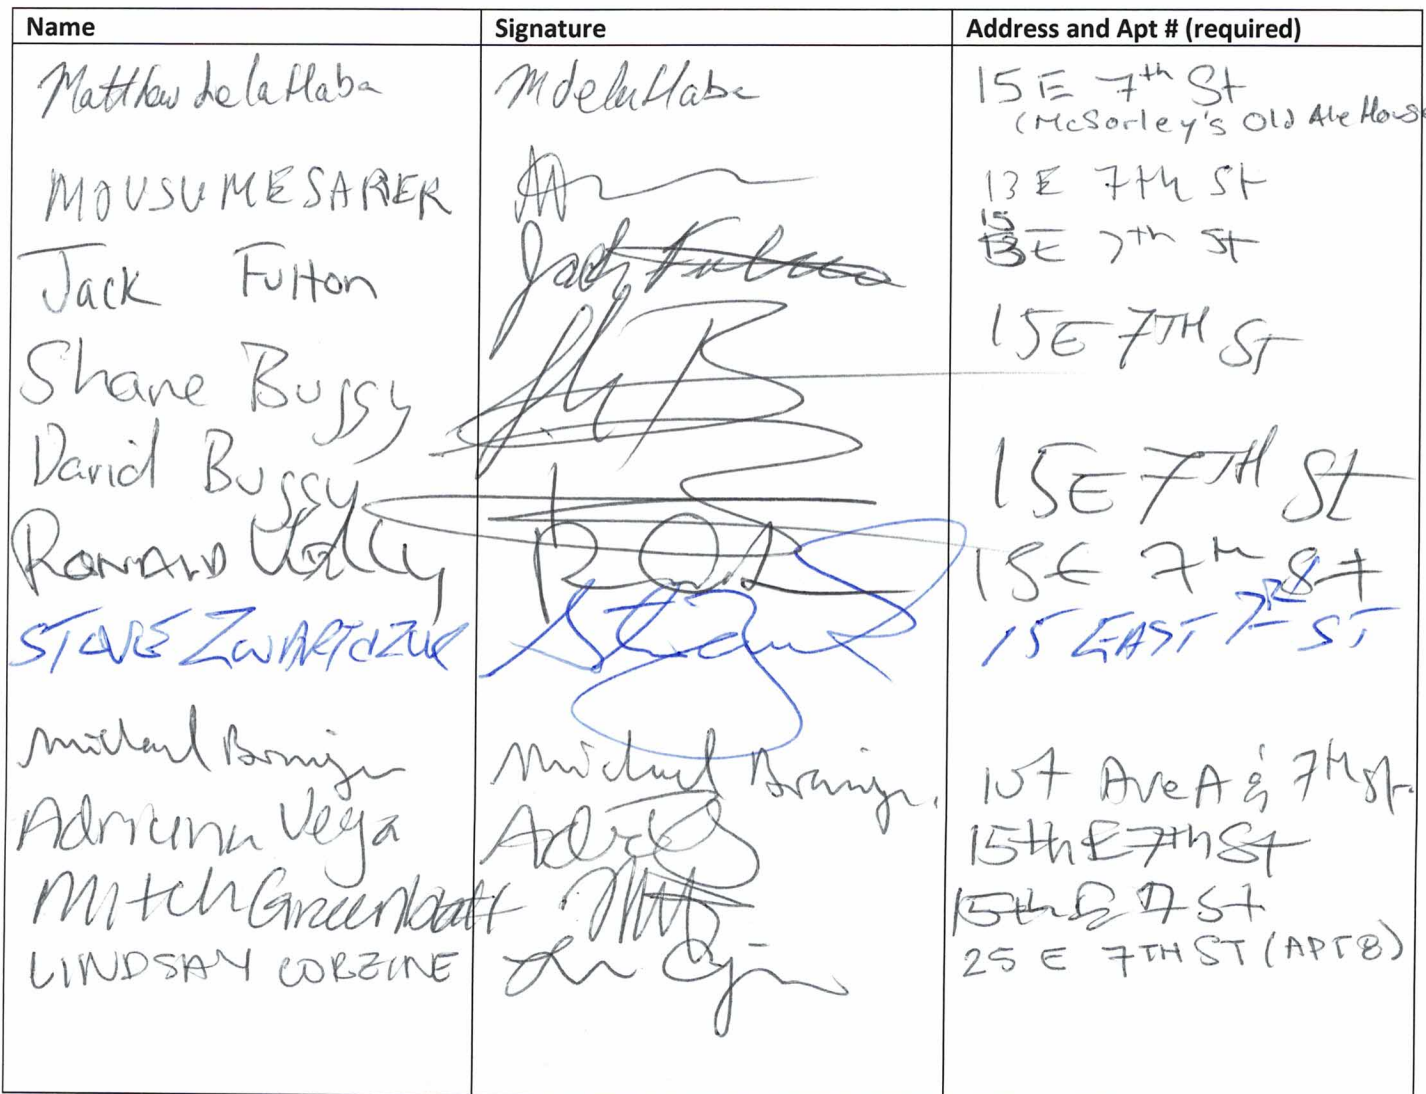 Name Signature Address and Apt # (required)
Matthew de la Haba M de la Haba 15 E 7th St
(McSorley's Old Ale House
MOUSUMESARER 13 E 7th St
Jack Fulton Jack Fulton 15 E 7th St
Shane Buggy 15 E 7TH ST
David Buggy 15 E 7TH St
RONALD 15 E 7th St
STEVE 15 EAST 7 ST
Michael Michael 107 Ave A & 7th St.
Adriana Vega 15th E 7th St
Mitch Greenblatt 15th E 7 St
LINDSAY CORZINE 25 E 7TH ST (APT 8)